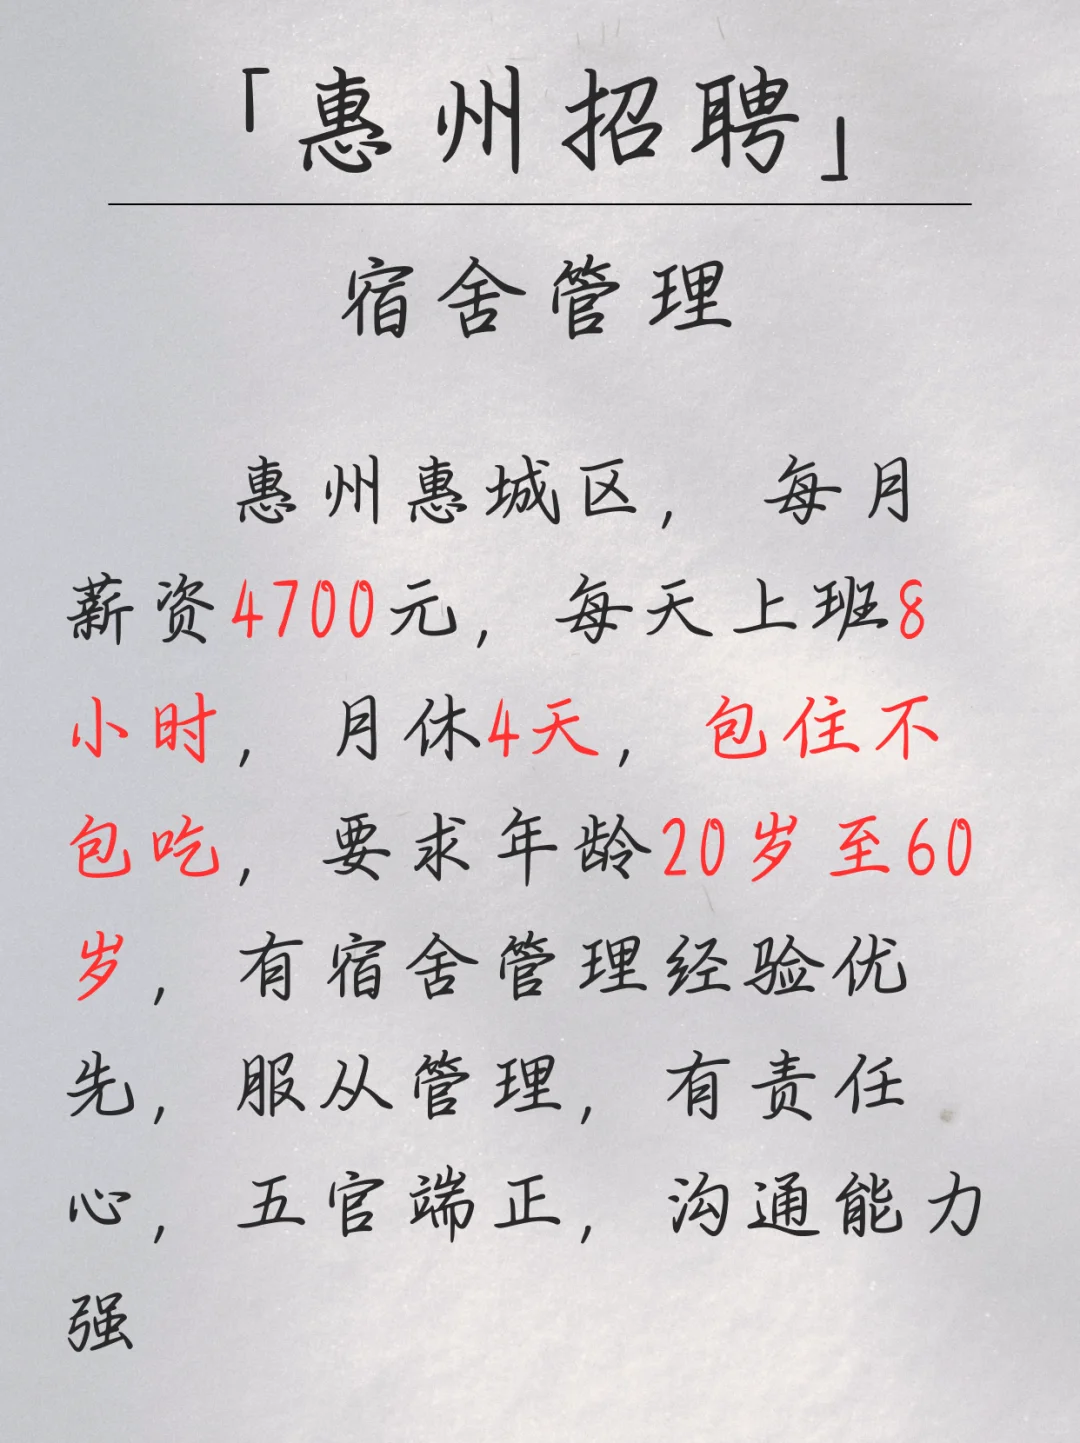 「惠州招聘」
宿舍管理
惠州惠城区，每月
薪资4700元，每天上班8
小时，月休4天，包住不
包吃，要求年龄20岁至60
岁，有宿舍管理经验优
先，服从管理，有责任
心，五官端正，沟通能力
强